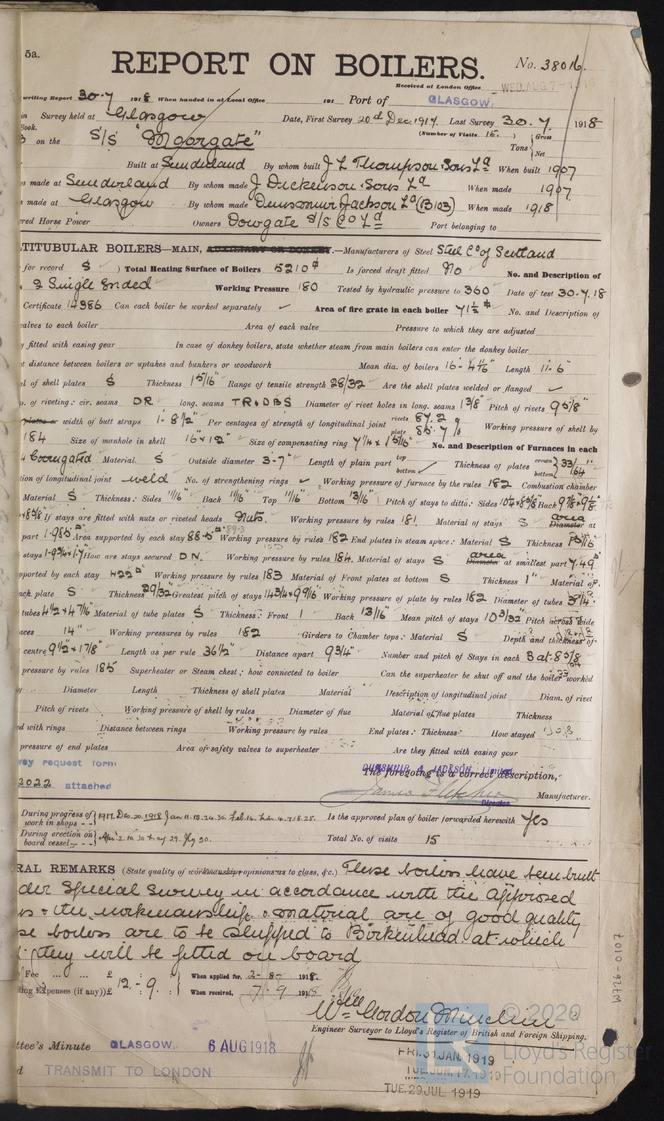 5a.
REPORT ON BOILERS.
No. 38016.
Received at London Office WED. AUG 7 - 1918
writing Report 30.7 1918 When handed in at Local Office 191 Port of GLASGOW.
Survey held at Glasgow Date, First Survey 20th Dec. 1917. Last Survey 30.7. 1918
Book. (Number of Visits 15.) Gross
on the S/S "Moorgate" Tons Net
Built at Sunderland By whom built J L Thompson & Sons Ld When built 1907
made at Sunderland By whom made J Dickenson & Sons Ld When made 1907.
made at Glasgow By whom made Dunsmuir & Jackson Ld (B103) When made 1918
red Horse Power Owners Dowgate S/S Co Ld Port belonging to
LTITUBULAR BOILERS—MAIN, AUXILIARY OR DONKEY.—Manufacturers of Steel Steel Co of Scotland
for record S ) Total Heating Surface of Boilers 5210 Is forced draft fitted No No. and Description of
Single Ended Working Pressure 180 Tested by hydraulic pressure to 360 Date of test 30.7.18
Certificate 14386 Can each boiler be worked separately ✓ Area of fire grate in each boiler 71½ No. and Description of
valves to each boiler Area of each valve Pressure to which they are adjusted
fitted with easing gear In case of donkey boilers, state whether steam from main boilers can enter the donkey boiler
t distance between boilers or uptakes and bunkers or woodwork Mean dia. of boilers 16-4 Length 11-6"
l of shell plates S Thickness 15/16" Range of tensile strength 28/32 Are the shell plates welded or flanged ✓
p. of riveting: cir. seams DR long. seams TR.DBS Diameter of rivet holes in long. seams 1 3/8 Pitch of rivets 9 5/8"
width of butt straps 1-8½" Per centages of strength of longitudinal joint rivets 87.2 plate 85.7 Working pressure of shell by
184 Size of manhole in shell 16" x 12" Size of compensating ring 7¼ x 1 5/16" No. and Description of Furnaces in each
Corrugated Material S Outside diameter 3-7" Length of plain part top bottom ✓ Thickness of plates crown bottom 33/64"
tion of longitudinal joint weld No. of strengthening rings ✓ Working pressure of furnace by the rules 182 Combustion chamber
Material S Thickness: Sides 11/16" Back 11/16 Top 11/16" Bottom 13/16" Pitch of stays to ditto: Sides Back
If stays are fitted with nuts or riveted heads Nuts. Working pressure by rules 181. Material of stays S area Diameter at
part 1.985 Area supported by each stay 88.5 Working pressure by rules 182 End plates in steam space: Material S Thickness 15/16
stays How are stays secured DN. Working pressure by rules 184. Material of stays S area Diameter at smallest part 7.49
pported by each stay 422 Working pressure by rules 183 Material of Front plates at bottom S Thickness 1" Material of
ack plate S Thickness 29/32 Greatest pitch of stays Working pressure of plate by rules 182 Diameter of tubes 3¼"
tubes Material of tube plates S Thickness: Front 1 Back 13/16" Mean pitch of stays 10 3/32" Pitch across wide
aces 14" Working pressures by rules 182 Girders to Chamber tops: Material S Depth and thickness of
centre 9½" x 1 7/8" Length as per rule 36½" Distance apart 9¾" Number and pitch of Stays in each 3 at 8 5/8
pressure by rules 185 Superheater or Steam chest; how connected to boiler Can the superheater be shut off and the boiler worked
Diameter Length Thickness of shell plates Material Description of longitudinal joint Diam. of rivet
Pitch of rivets Working pressure of shell by rules Diameter of flue Material of flue plates Thickness
d with rings Distance between rings Working pressure by rules End plates: Thickness How stayed
pressure of end plates Area of safety valves to superheater Are they fitted with easing gear
vey request form
2022 attached
DUNSMUIR & JACKSON, Limited,
The foregoing is a correct description,
Director. Manufacturer.
During progress of work in shops 1917. Dec. 20. 1918 Jan 11. 18. 24. 30.
During erection on board vessel
Is the approved plan of boiler forwarded herewith Yes
Total No. of visits 15
RAL REMARKS (State quality of workmanship, opinions as to class, &c.) These boilers have been built
der Special Survey in accordance with the approved
s & the workmanship & material are of good quality
se boilers are to be shipped to Birkenhead at which
they will be fitted on board
Fee £ : : When applied for, 2-8- 1918
ng Expenses (if any) £ 12 . 9 . When received, 7.9 1918
Wm Gordon
Engineer Surveyor to Lloyd's Register of British and Foreign Shipping.
ttee's Minute GLASGOW. 6 AUG 1918
TRANSMIT TO LONDON
FRI. 31 JAN. 1919
TUE. JUN. 17. 1919
TUE. 29 JUL 1919
© 2020
Lloyd's Register
Foundation
W726-0107